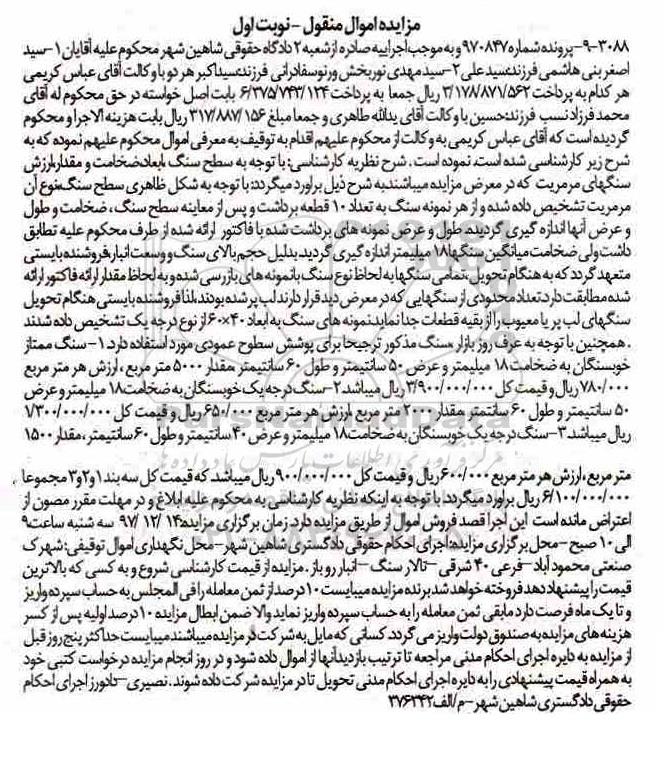 مزایده اموال منقول - نوبت اول
۹-۳۰۸۸- پرونده شماره ۹۷۰۸۴۷ و به موجب اجراییه صادره از شعبه ۲ دادگاه حقوقی شاهین شهر محکوم علیه آقایان ۱- سید
اصغر بنی هاشمی فرزند:سید علی ۲- سید مهدی نوربخش ورنوسفادرانی فرزند:سیداکبر هر دو با وکالت آقای عباس کریمی
هر کدام به پرداخت ۳/۱۷۸/۸۷۱/۵۶۲ ریال جمعا به پرداخت ۶/۳۷۵/۷۴۳/۱۲۴ بابت اصل خواسته در حق محکوم له آقای
محمد فرزاد نسب فرزند:حسین با وکالت آقای یدالله طاهری و جمعا مبلغ ۳۱۷/۸۸۷/۱۵۶ ریال بابت هزینه الاجرا و محکوم
گردیده است که آقای عباس کریمی به وکالت از محکوم علیهم اقدام به توقیف به معرفی اموال محکوم علیهم نموده که به
شرح زیر کارشناسی شده است، نموده است . شرح نظریه کارشناسی: با توجه به سطح سنگ ،ابعاد،ضخامت و مقدار،ارزش
سنگهای مرمریت که در معرض مزایده میباشند،به شرح ذیل براورد میگردد:با توجه به شکل ظاهری سطح سنگ،نوع آن
مرمریت تشخیص داده شده و از هر نمونه سنگ به تعداد ۱۰ قطعه برداشت و پس از معاینه سطح سنگ ، ضخامت و طول
و عرض آنها اندازه گیری گردید. طول و عرض نمونه های برداشت شده با فاکتور ارائه شده از طرف محکوم علیه تطابق
داشت ولی ضخامت میانگین سنگها ۱۸ میلیمتر اندازه گیری گردید.بدلیل حجم بالای سنگ و وسعت انبار،فروشنده بایستی
متعهد گردد که به هنگام تحویل ،تمامی سنگها به لحاظ نوع سنگ با نمونه های بازرسی شده و به لحاظ مقدار ارائه فاکتور ارائه
شده مطابقت دارد. تعداد محدودی از سنگهایی که در معرض دید قرار دارند لب پر شده بودند، لذا فروشنده بایستی هنگام تحویل
سنگهای لب پر یا معیوب را از بقیه قطعات جدا نماید.نمونه های سنگ به ابعاد ۴۰×۶۰ از نوع درجه یک تشخیص داده شدند
. همچنین با توجه به عرف روز بازار ،سنگ مذکور ترجیحا برای پوشش سطوح عمودی مورد استفاده دارد. ۱- سنگ ممتاز
خوبسنگان به ضخامت ۱۸ میلیمتر و عرض ۵۰ سانتیمتر و طول ۶۰ سانتیمتر ،مقدار ۵۰۰۰ متر مربع ، ارزش هر متر مربع
۷۸۰/۰۰۰ ریال و قیمت کل ۳/۹۰۰/۰۰۰/۰۰۰ ریال میباشد. ۲- سنگ درجه یک خوبسنگان به ضخامت ۱۸ میلیمتر و عرض
۵۰ سانتیمتر و طول ۶۰ سانتیمتر ،مقدار ۲۰۰۰ متر مربع ،ارزش هر متر مربع ۶۵۰/۰۰۰ ریال و قیمت کل ۱/۳۰۰/۰۰۰/۰۰۰
ریال میباشد. ۳- سنگ درجه یک خوبسنگان به ضخامت ۱۸ میلیمتر و عرض ۴۰ سانتیمتر و طول ۶۰ سانتیمتر ، مقدار ۱۵۰۰
متر مربع ، ارزش هر متر مربع ۶۰۰/۰۰۰ ریال و قیمت کل ۹۰۰/۰۰۰/۰۰۰ ریال میباشد که قیمت کل سه بند ۱و۲و۳ مجموعا
۶/۱۰۰/۰۰۰/۰۰۰ ریال براورد میگردد. با توجه به اینکه نظریه کارشناسی به محکوم علیه ابلاغ و در مهلت مقرر مصون از
اعتراض مانده است این اجرا قصد فروش اموال از طریق مزایده دارد. زمان برگزاری مزایده ۱۴/ ۱۲/ ۹۷ سه شنبه ساعت ۹
الی ۱۰ صبح - محل برگزاری مزایده:اجرای احکام حقوقی دادگستری شاهین شهر- محل نگهداری اموال توقیفی: شهرک
صنعتی محمود آباد - فرعی ۴۰ شرقی - تالار سنگ - انبار روباز . مزایده از قیمت کارشناسی شروع و به کسی که بالاترین
قیمت را پیشنهاد دهد فروخته خواهد شد.برنده مزایده میبایست ۱۰ درصد از ثمن معامله را فی المجلس به حساب سپرده واریز
و تا یک ماه فرصت دارد مابقی ثمن معامله را به حساب سپرده واریز نماید والا ضمن ابطال مزایده ۱۰ درصد اولیه پس از کسر
هزینه های مزایده به صندوق دولت واریز می گردد. کسانی که مایل به شرکت در مزایده میباشند میبایست حداکثر پنج روز قبل
از مزایده به دایره اجرای احکام مدنی مراجعه تا ترتیب بازدید آنها از اموال داده شود و در روز انجام مزایده درخواست کتبی خود
به همراه قیمت پیشنهادی را به دایره اجرای احکام مدنی تحویل تا در مزایده شرکت داده شوند. نصیری - دادورز اجرای احکام
حقوقی دادگستری شاهین شهر- م/الف ۳۷۶۳۴۲